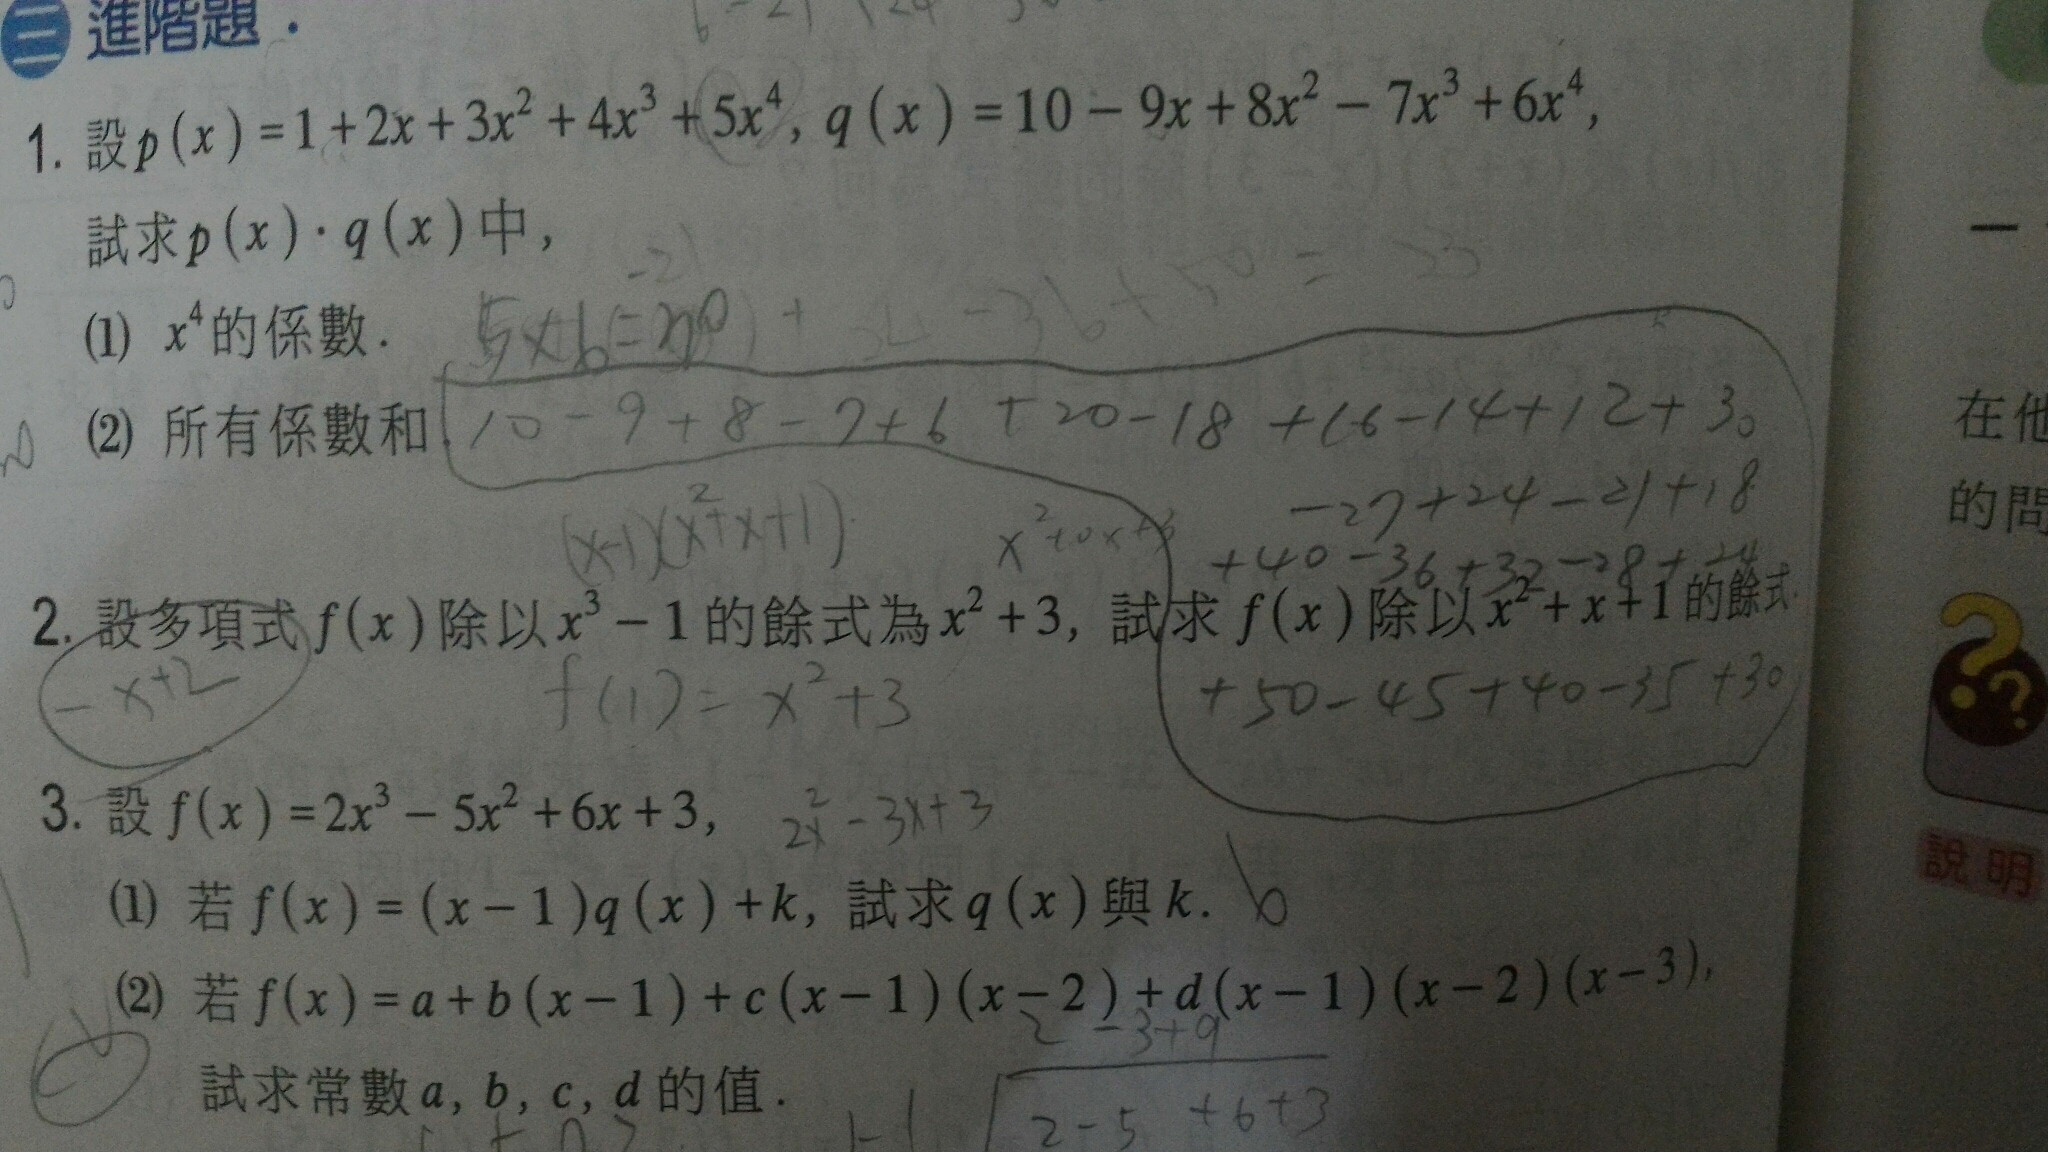 二 進階題.
1. 設p(x)=1+2x+3x²+4x³+5x⁴, q(x)=10-9x+8x²-7x³+6x⁴,
試求p(x)·q(x)中,
(1) x⁴的係數.
(2) 所有係數和.
10-9+8-7+6+20-18+16-14+12+30
-27+24-21+18
+40-36+32-28+24
(x-1)(x²+x+1)
2. 設多項式f(x)除以x³-1的餘式為x²+3, 試求f(x)除以x²+x+1的餘式.
-x+2
f(1)=x²+3
+50-45+40-35+30
3. 設f(x)=2x³-5x²+6x+3,
2x²-3x+3
(1) 若f(x)=(x-1)q(x)+k, 試求q(x)與k.
6
(2) 若f(x)=a+b(x-1)+c(x-1)(x-2)+d(x-1)(x-2)(x-3),
試求常數a, b, c, d的值.
2-3+9
2-5+6+3
在他
的問
說明